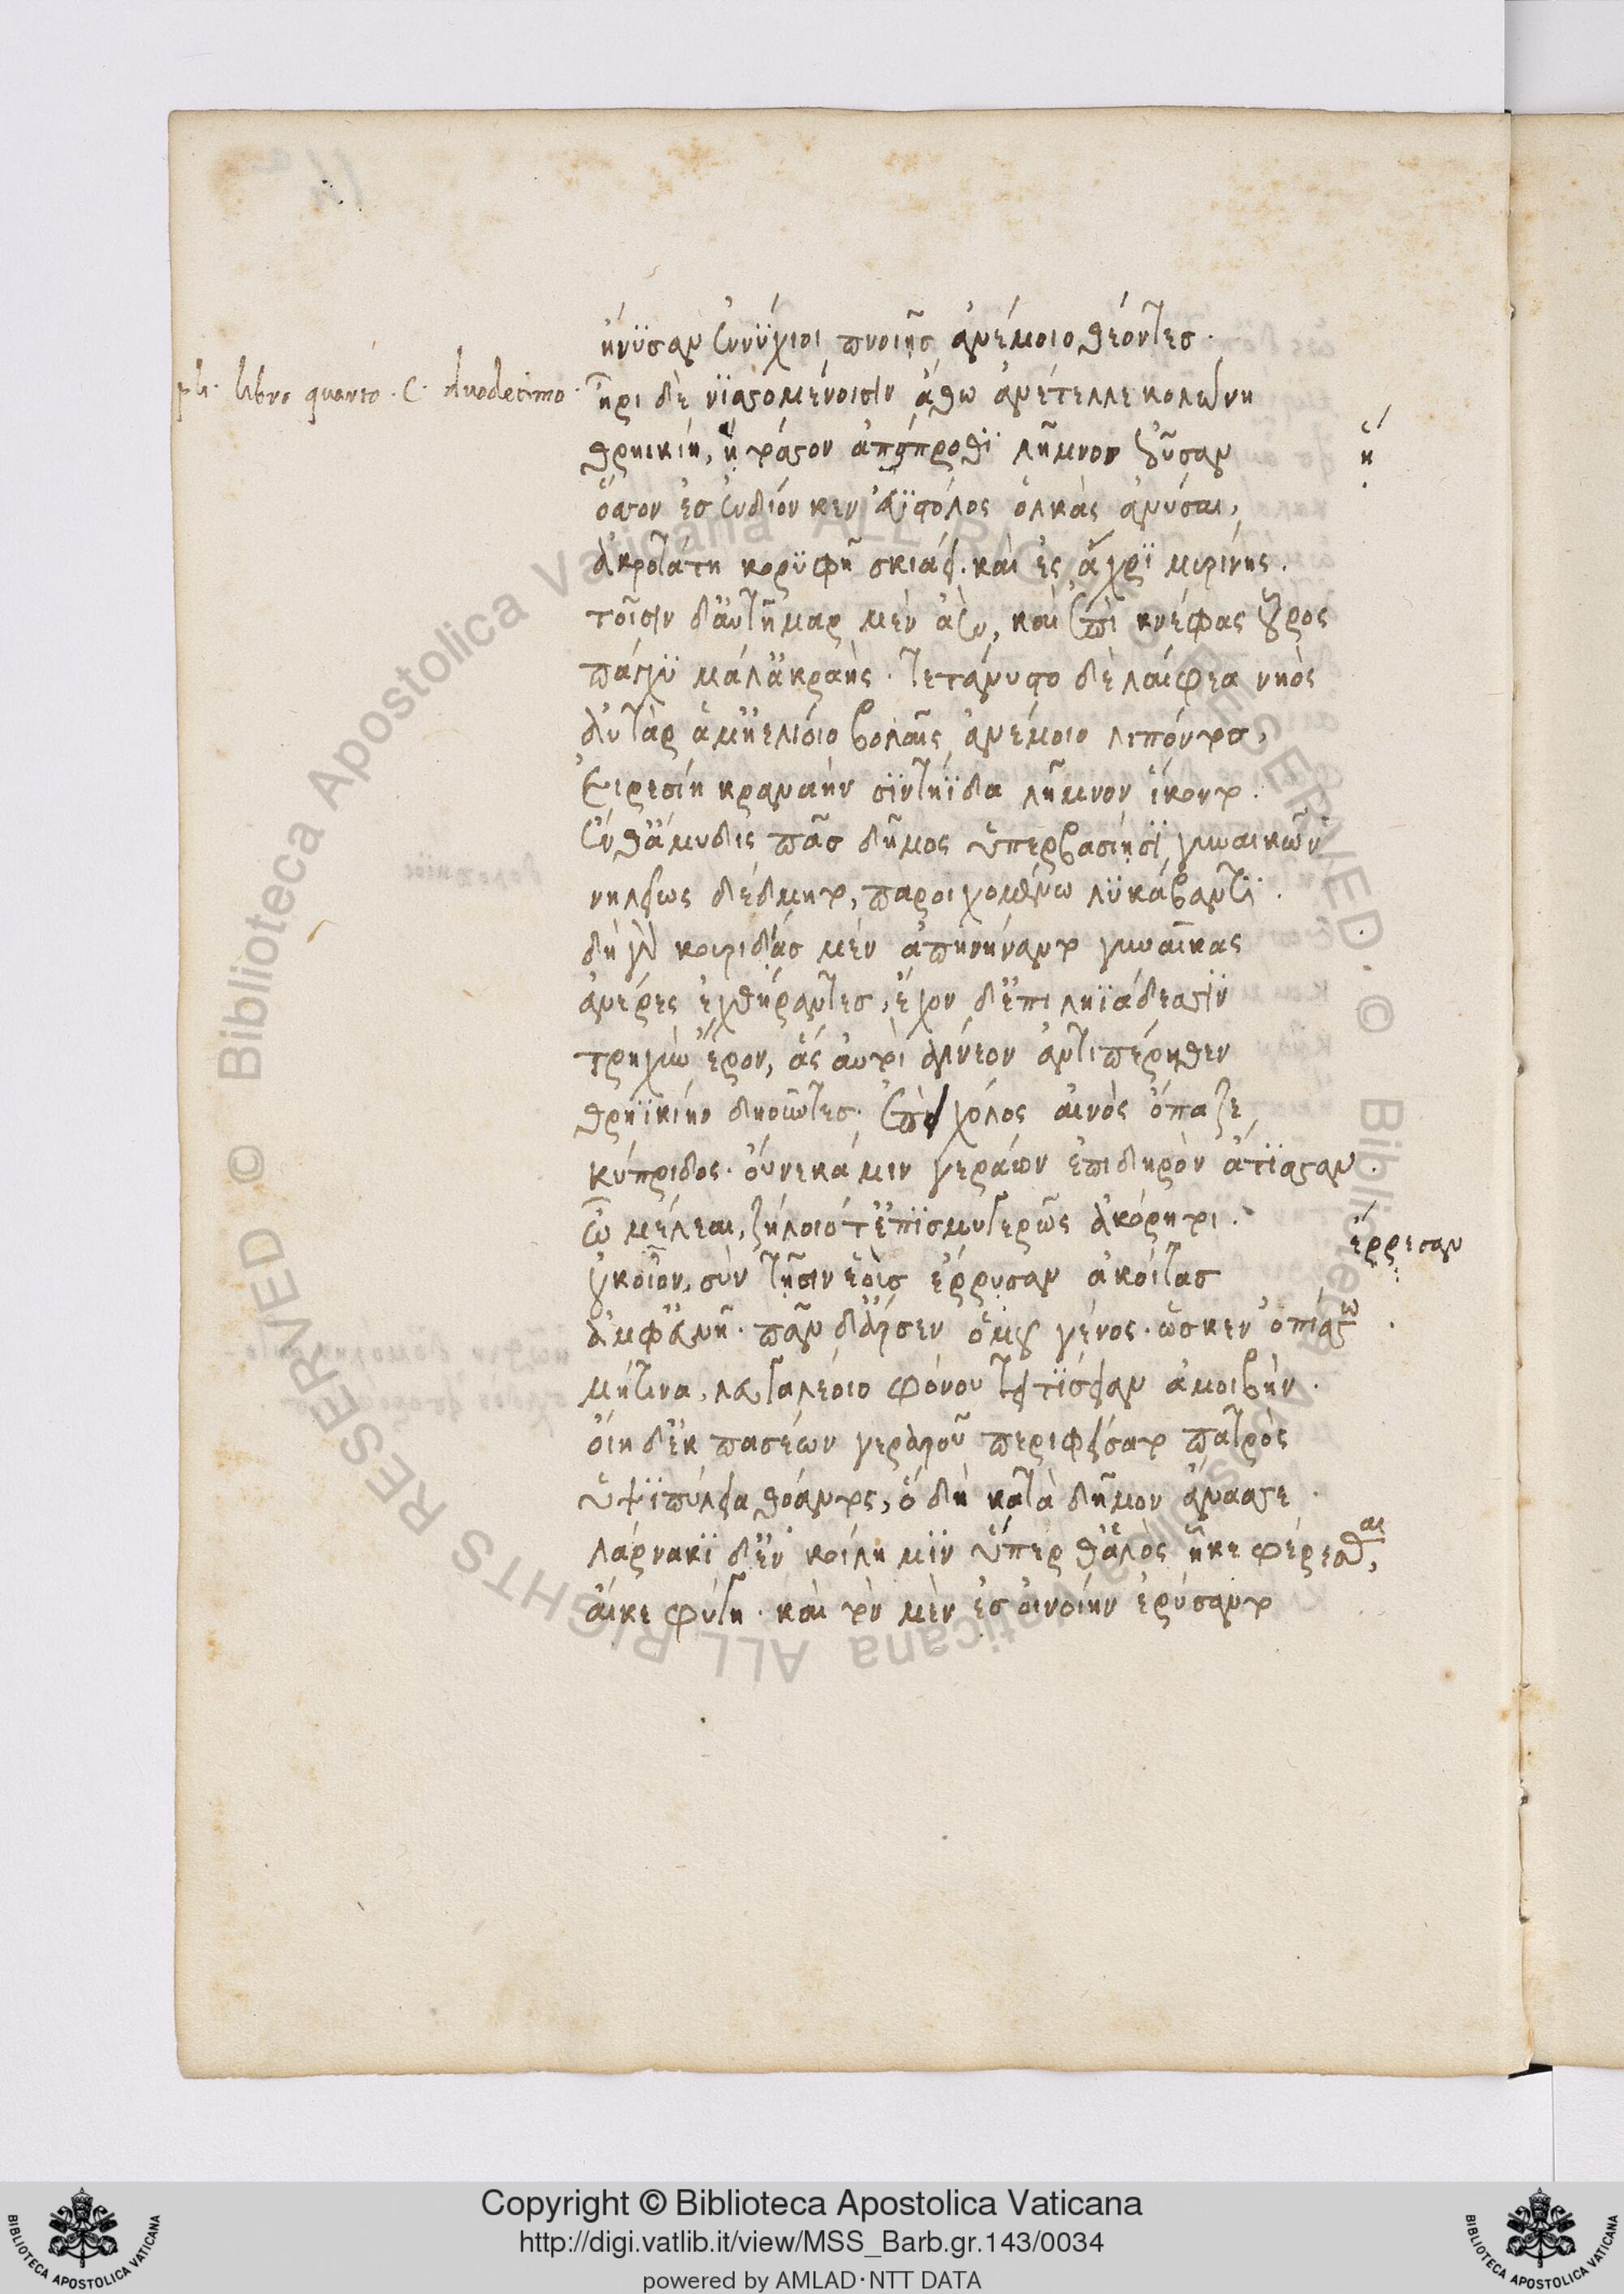 ἤνϋσαν ἐννύχιοι πνοιῆς ἀνέμοιο θέοντες.
pli. libro quarto. C. duodecimo.
ἦρι δὲ νϊσσομένοισιν ἄθω ἀνέτελλε κολώνη
θρηικίη, ἣ τόσσον ἀπόπροθϊ λῆμνον ἐοῦσαν
ἡ
ὅσσον ἐς ἔνδιόν κεν ἐΰστολος ὁλκὰς ἀνύσαι,
ἀκροτάτη κορϋφῆ σκιάει. καὶ ἐς ἄχρϊ μυρίνης.
τοῖσιν δ' αὐτῆμαρ μὲν ἄεν, καὶ ἐπὶ κνέφας οὖρος
πάγχϋ μάλ' ἀκραὴς. τετάνυστο δὲ λαίφεα νηὸς
αὐτὰρ ἅμ' ἠελίοιο βολαῖς ἀνέμοιο λιπόντος,
εἰρεσίη κραναὴν σϊντηΐδα λῆμνον ἵκοντο.
ἔνθ' ἄμυδις πᾶς δῆμος ὑπερβασίησϊ γυναικῶν
νηλειῶς δέδμητο, παροιχομένω λϋκάβαντϊ.
δὴ γὰρ κουριδίας μὲν ἀπηνήναντο γυναῖκας
ἀνέρες ἐχθήραντες, ἔχον δ' ἐπὶ ληϊάδεσσιν
τρηχὺν ἔρον, ἃς αὐτοὶ ἀγίνεον ἀντιπέρηθεν
θρηϊκίην δηοῦντες. ἐπεὶ χόλος αἰνὸς ὄπαζε
κύπριδος. οὕνεκά μιν γεράων ἐπιδηρὸν ἄτϊσσαν.
ὦ μέλεαι, ζήλοιό τ' ἐπϊσμυγερῶς ἀκόρητοι.
οὐκ οἶον, σὺν τῆσιν ἑοῖς ἔρρυσαν ἀκοίτας
ἔρρεσαν
ἀμφ' εὐνῆ. πᾶν δ' ἄρσεν ὁμοῦ γένος. ὥς κεν ὀπίσσω.
μήτινα, λευγαλέοιο φόνου τετϊσειαν ἀμοιβήν.
οἴη δ' ἐκ πασέων γεραροῦ περιφείσατο πατρὸς
ὑψϊπύλεια θόαντος, ὃ δὴ κατὰ δῆμον ἄνασσε.
λάρνακϊ δ' ἐν κοίλη μϊν ὕπερθ' ἁλὸς ἧκε φέρεσθαι,
αἴκε φύγη. καὶ τὸν μὲν ἐς οἰνοίην ἐρύσαντο
Copyright © Biblioteca Apostolica Vaticana
http://digi.vatlib.it/view/MSS_Barb.gr.143/0034
powered by AMLAD·NTT DATA